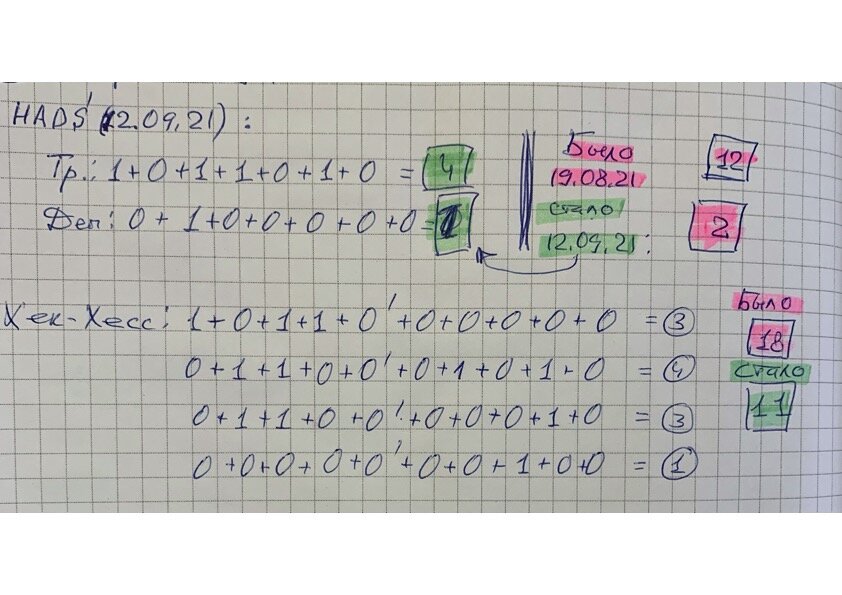 HADS (12.09.21) :
Тр.: 1+0+1+1+0+1+0 = 4
Деп: 0+1+0+0+0+0+0=1
Было
19.08.21
стало
12.09.21:
12
2
Хек-Хесс: 1+0+1+1+0'+0+0+0+0+0 = 3
0+1+1+0+0'+0+1+0+1+0 = 4
0+1+1+0+0'+0+0+0+1+0 = 3
0+0+0+0+0'+0+0+1+0+0 = 1
Было
18
стало
11